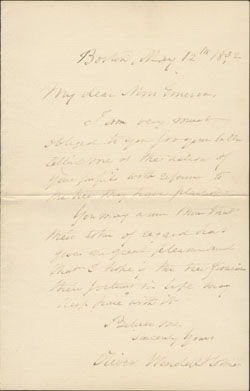 Boston, May 12th 1892
My dear Miss Emerson,
I am very much
obliged to you for your letter
telling me of the action of
your pupils with reference to
the tree they have planted.
You may assure them that
their token of regard has
given me great pleasure and
that I hope if the tree flourishes
their fortunes in life may
keep pace with it.
Believe me
Sincerely Yours
Oliver Wendell Holmes